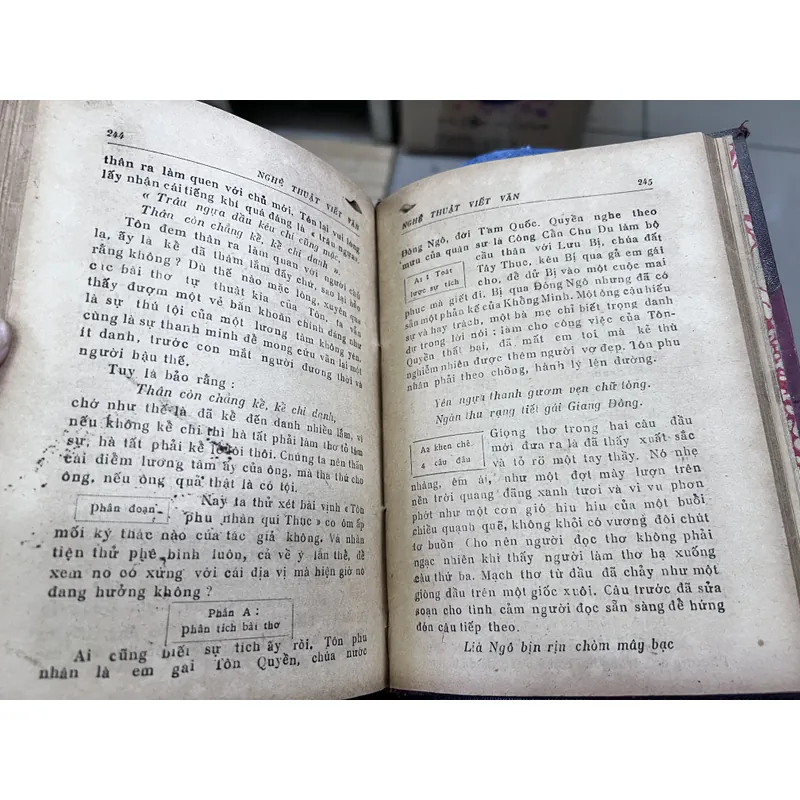 244
NGHỆ THUẬT VIẾT VĂN
thân ra làm quen với chủ mới, Tôn lại vui lòng
lấy nhận cái tiếng khí quá đáng là « trâu ngựa».
« Trâu ngựa dầu kêu chi cũng mặc,
Thân còn chẳng kể, kể chi danh ».
Tôn đem thân ra làm quen với người chủ
lạ, ấy là kể đã thám lắm đấy chứ, sao lại bảo
rằng không ? Dù thế nào mặc lòng, xuyên qua
các bài thơ tự thuật kia của Tôn, ta vẫn
thấy đượm một vẻ băn khoăn chính đáng như
là sự thú tội của một lương tâm không yên.
cùng là sự thanh minh để mong cứu vãn lại một
ít danh, trước con mắt người đương thời và
người hậu thế.
Tuy là bảo rằng :
Thân còn chẳng kể, kể chi danh,
chớ như thế là đã kể đến danh nhiều lắm, vì
nếu không kể chi thì hà tất phải làm thơ tỏ tâm
sự, hà tất phải kể lể lôi thôi. Chúng ta nên thấu
cái điểm lương tâm ấy của ông, mà tha thứ cho
ông, nếu ông quả thật là có tội.
phân đoạn
Nay ta thử xét bài vịnh « Tôn
phu nhân qui Thục » có ôm ấp
mối ký thác nào của tác giả không. Và nhân
tiện thử phê bình luôn, cả về ý lẫn thể, để
xem nó có xứng với cái địa vị mà hiện giờ nó
đang hưởng không ?
Phần A :
phân tích bài thơ
Ai cũng biết sự tích ấy rồi, Tôn phu
nhân là em gái Tôn Quyền, chúa nước
NGHỆ THUẬT VIẾT VĂN
245
Đông Ngô, đời Tam Quốc. Quyền nghe theo
mưu của quân sư là Công Cần Chu Du làm bộ
A1 : Toát
lược sự tích
cầu thân với Lưu Bị, chúa đất
Tây Thục, kêu Bị qua gả em gái
cho, để dử Bị vào một cuộc mai
phục mà giết đi. Bị qua Đông Ngô nhưng đã có
sẵn một phản kế của Khổng Minh. Một ông cầu hiếu
sự và hay trách, một bà mẹ chỉ biết trọng danh
dự trong lời nói ; làm cho công việc của Tôn-
Quyền thất bại, đã mất em toi mà kẻ thù
nghiễm nhiên được thêm người vợ đẹp. Tôn phu
nhân phải theo chồng, hành lý lên đường.
Yên ngựa thanh gươm vẹn chữ tòng.
Ngàn thu rạng tiết gái Giang Đông.
A2 khen chê.
4 câu đầu
Giọng thơ trong hai câu đầu
mới đưa ra là đã thấy xuất sắc
và tỏ rõ một tay thầy. Nó nhẹ
nhàng, êm ái, như một đợt mây lượn trên
nền trời quang đãng xanh tươi và vi vu phơn
phớt như một cơn gió hiu hiu của một buổi
chiều quạnh quẽ, không khỏi có vương đôi chút
tơ buồn Cho nên người đọc thơ không phải
ngạc nhiên khi thấy người làm thơ hạ xuống
câu thứ ba. Mạch thơ từ đầu đã chảy như một
giòng dầu trên một giốc xuôi. Câu trước đã sửa
soạn cho tình cảm người đọc sẵn sàng để hứng
đón câu tiếp theo.
Lìa Ngô bịn rịn chòm mây bạc